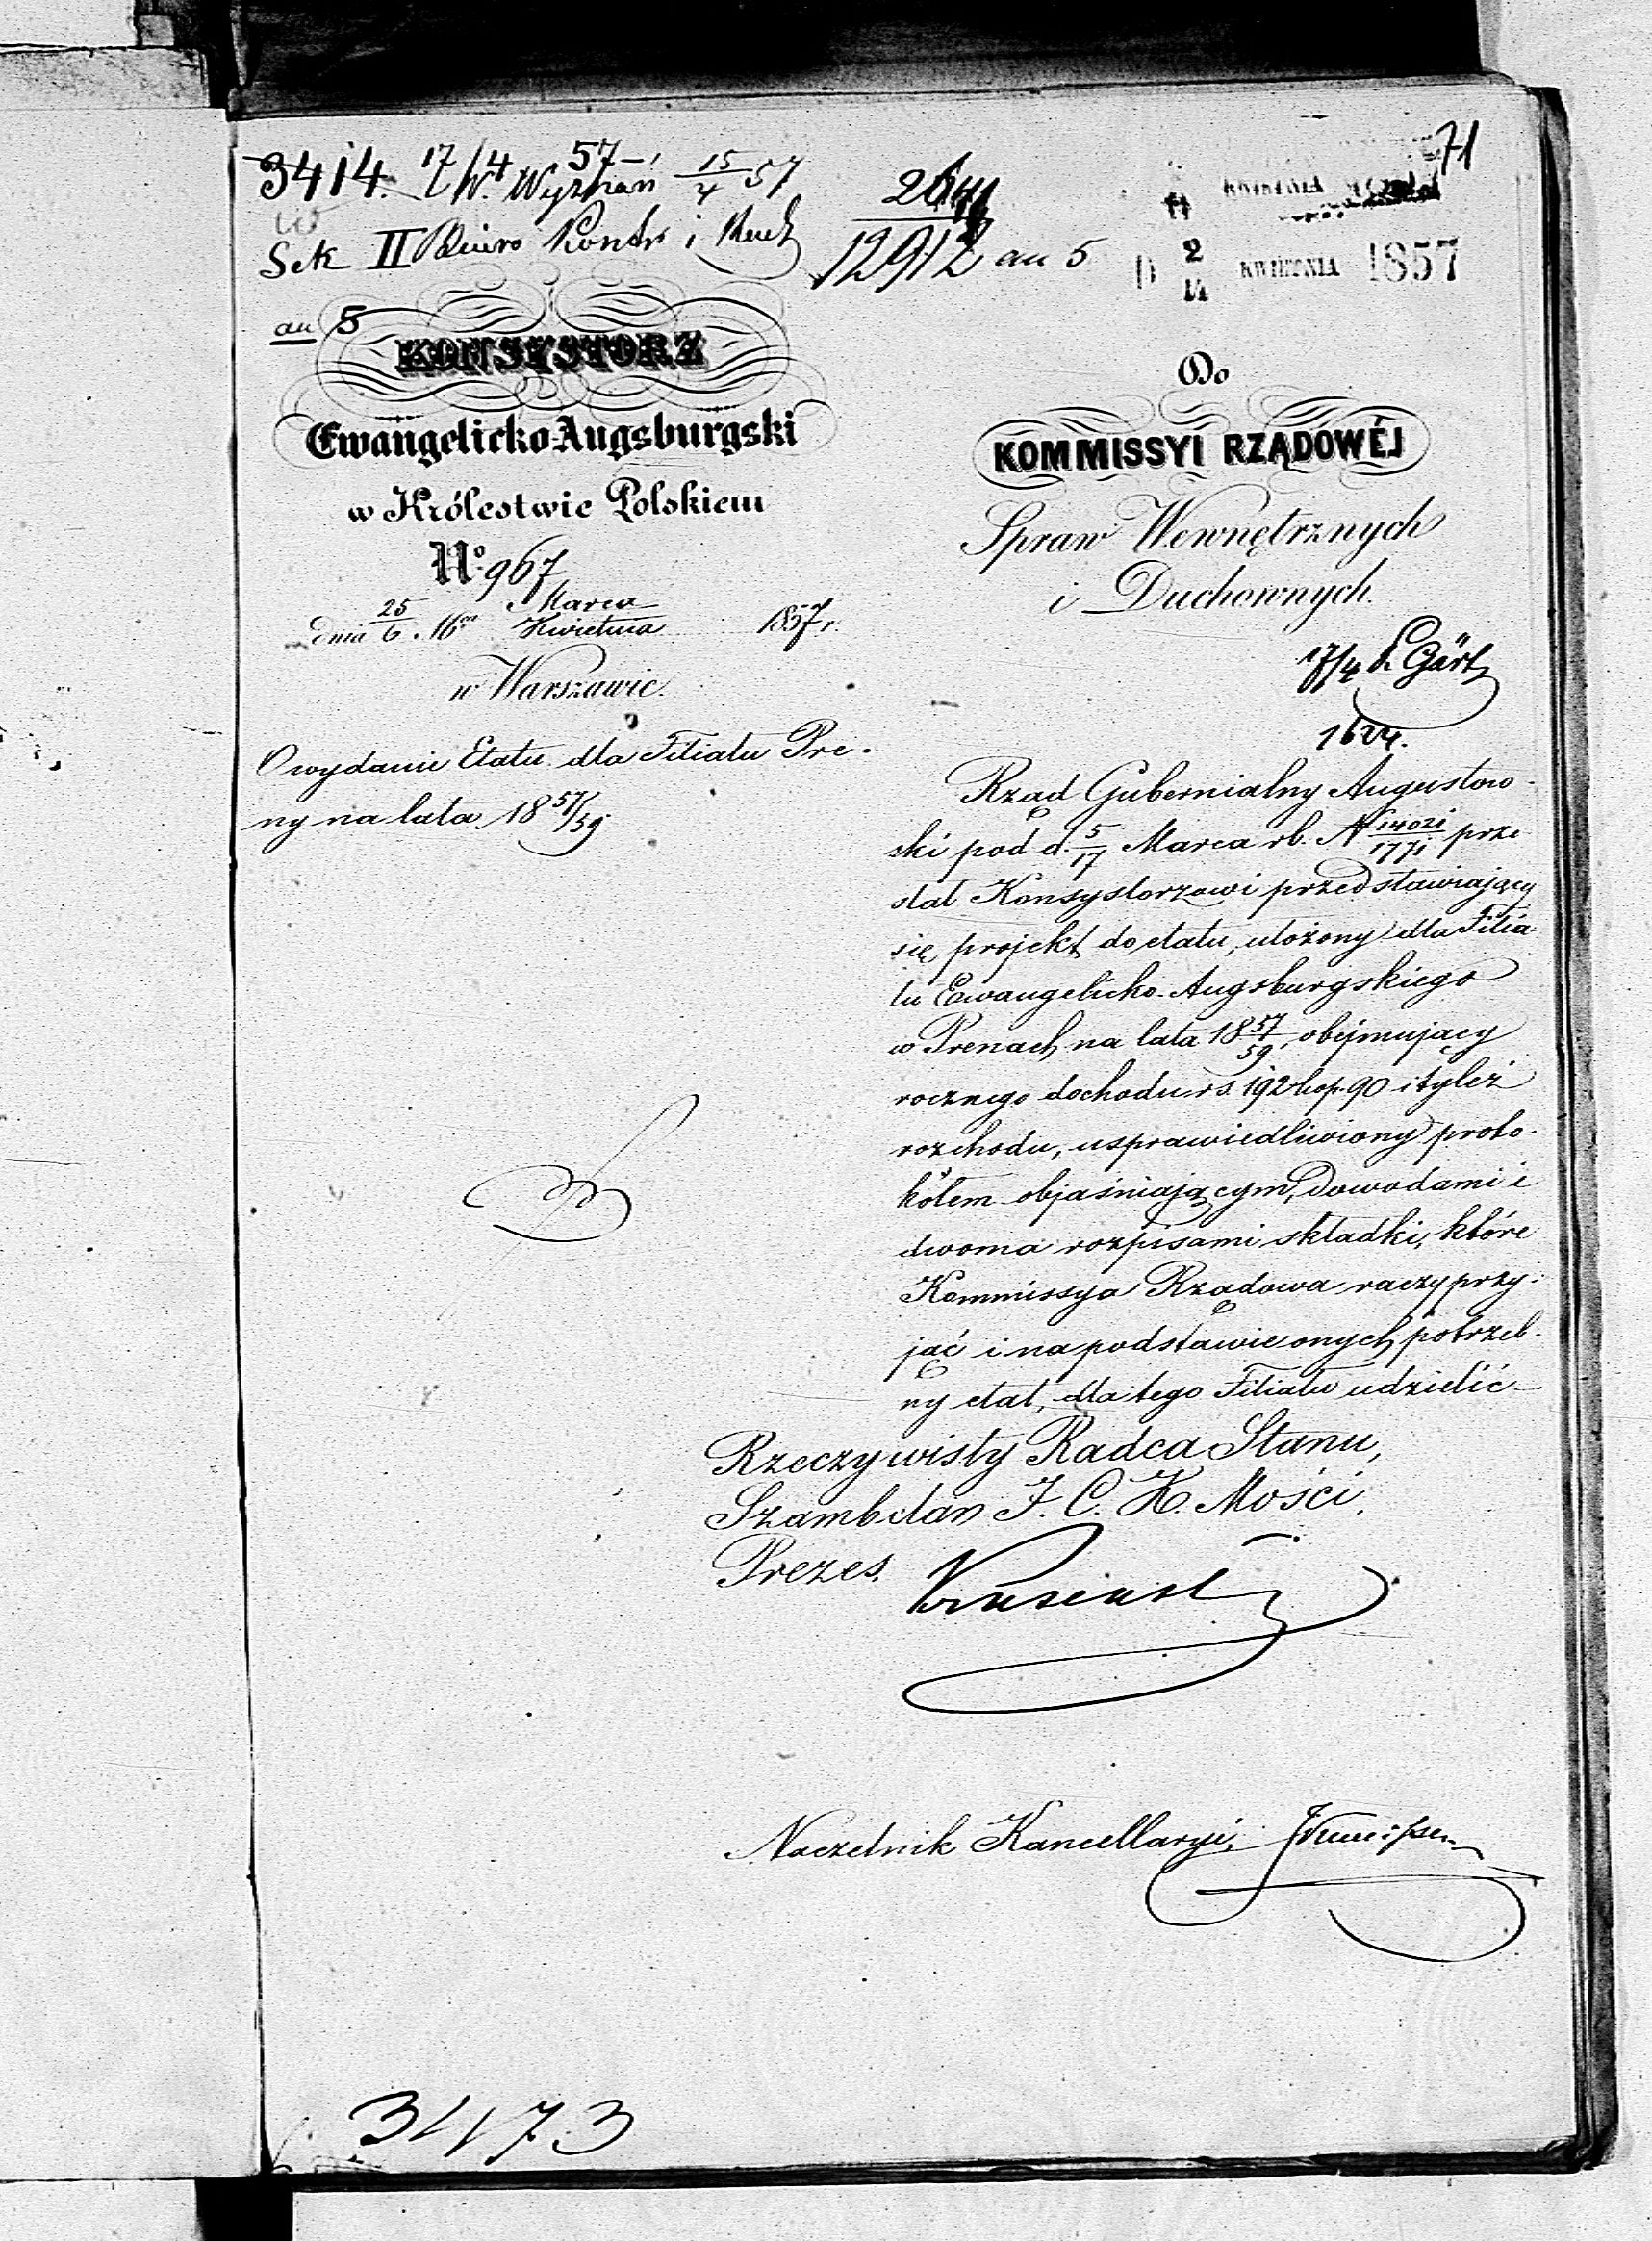 71
3414. 17/4 57
W. Wyznań 15/4 57
Sek II Biuro Kontr i Rach
12912 au 5
KWIETNIA
D 2/14 KWIETNIA 1857
au 5
KONSYSTORZ
Ewangelicko-Augsburgski
w Królestwie Polskiem
No. 967
dnia 25/6 Mca Marca/Kwietnia 1857 r.
w Warszawie.
O wydanie Etatu dla Filiału Pre-
ny na lata 18 57/59
Do
KOMMISSYI RZĄDOWÉJ
Spraw Wewnętrznych
i Duchownych.
17/4
1624.
Rząd Gubernialny Augustow-
ski pod d. 5/17 Marca rb. N 14021/1771 prze-
słał Konsystorzowi przedstawiający
się projekt do etatu, ułożony dla Filia-
łu Ewangelicko-Augsburgskiego
w Prenach na lata 18 57/59, obejmujący
rocznego dochodu rs. 192 kop. 90 i tyleż
rozchodu, usprawiedliwiony proto-
kółem objaśniającym, Dowodami i
dwoma rozpisami składki, które
Kommissya Rządowa raczy przy-
jąć i na podstawie onych potrzeb-
ny etat, dla tego Filiału udzielić
Rzeczywisty Radca Stanu,
Szambelan J. C. K. Mości,
Prezes.
Naczelnik Kancellaryi,
3473